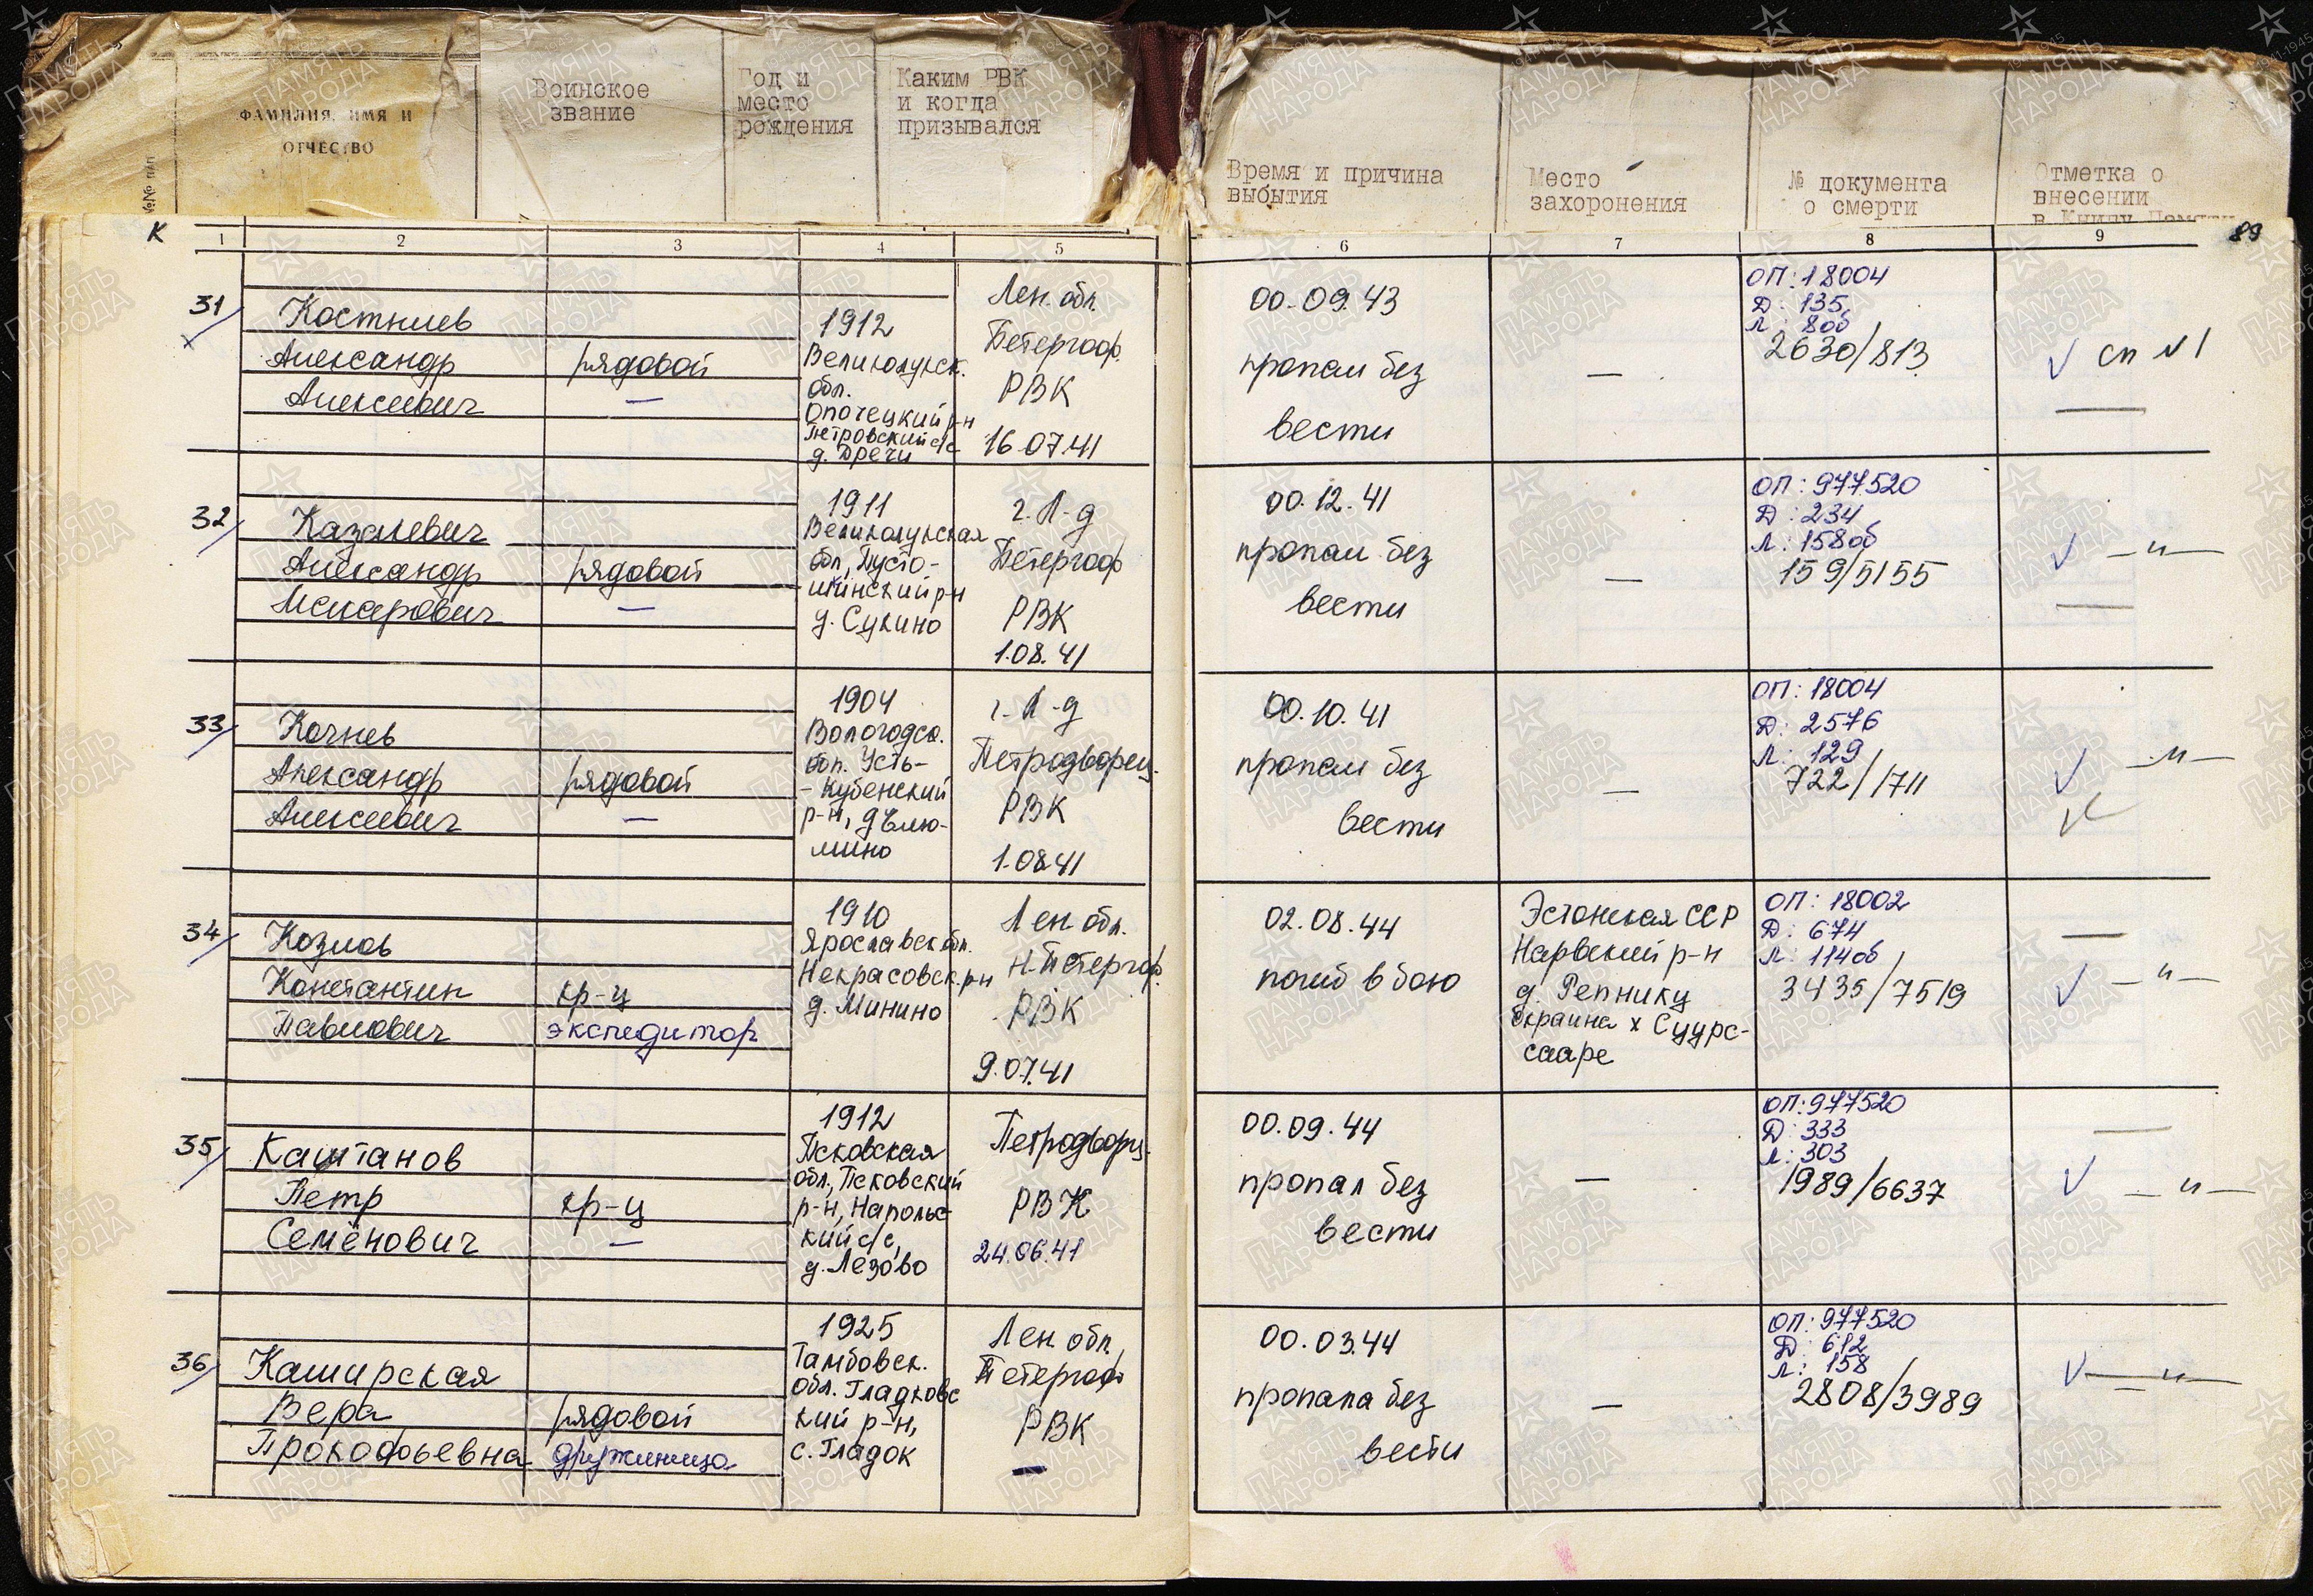 ФАМИЛИЯ, ИМЯ И
ОТЧЕСТВО
№№ пп
Воинское
звание
Год и
место
рождения
Каким РВК
и когда
призывался
Время и причина
выбытия
Место
захоронения
№ документа
о смерти
Отметка о
внесении
в Книгу Памяти
К
1 2 3 4 5 6 7 8 9
89
31/
Костычев
Александр
Алексеевич
рядовой
—
1912
Великолукск.
обл.
Опочецкий р-н
Петровский с/с
д. Дречи
Лен. обл.
Петергоф.
РВК
16.07.41
00.09.43
пропал без
вести
—
ОП: 18004
Д: 135
Л: 8об
2630/813
√ сп №1
32/
Казалевич
Александр
Макарович
рядовой
—
1911
Великолукская
обл, Пусто-
шкинский р-н
д. Сукино
г. Л-д
Петергоф
РВК
1.08.41
00.12.41
пропал без
вести
—
ОП: 977520
Д: 234
Л: 158об
159/5155
√ —"—
33/
Кочнев
Александр
Алексеевич
рядовой
—
1904
Вологодск.
обл. Усть-
-Кубенский
р-н, д
мино
г. Л-д
Петродворец.
РВК
1.08.41
00.10.41
пропал без
вести
—
ОП: 18004
Д: 2576
Л: 129
722/1711
√ —"—
34/
Козлов
Константин
Павлович
кр-ц
экспедитор
1910
Ярославск обл.
Некрасовск. р-н
д. Минино
Лен. обл.
Н-Петергоф.
РВК
9.07.41
02.08.44
погиб в бою
Эстонская ССР
Нарвский р-н
д. Репнику
окраина х Суурс-
сааре
ОП: 18002
Д: 674
Л: 114об
3435/7519
√ —"—
35/
Каштанов
Петр
Семёнович
кр-ц
—
1912
Псковская
обл., Псковский
р-н, Напольс-
кий с/с,
д. Лезово
Петродворц.
РВК
24.06.41
00.09.44
пропал без
вести
—
ОП: 977520
Д: 333
Л: 303
1989/6637
√ —"—
36/
Каширская
Вера
Прокофьевна
рядовой
дружинница
1925
Тамбовск.
обл. Гладковс
кий р-н,
с. Гладок
Лен. обл.
Петергоф
РВК
—
00.03.44
пропала без
вести
—
ОП: 977520
Д: 612
Л: 158
2808/3989
√ —"—
ПАМЯТЬ
НАРОДА